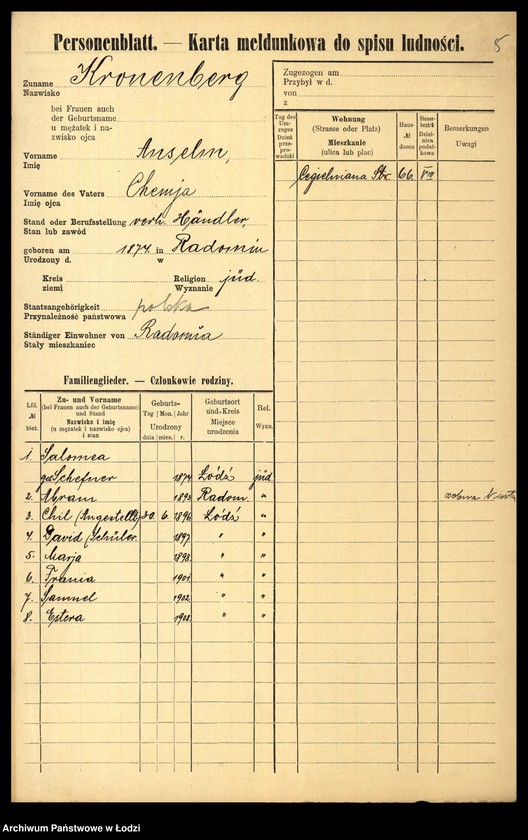 Personenblatt. — Karta meldunkowa do spisu ludności.
8
Zuname Kronenberg
Nazwisko
bei Frauen auch
der Geburtsname
u mężatek i na-
zwisko ojca
Vorname Anselm,
Imię
Vorname des Vaters Chemja
Imię ojca
Stand oder Berufsstellung verh. Händler,
Stan lub zawód
geboren am 1874 in Radomiu
Urodzony d. w
Kreis Religion jüd.
ziemi Wyznanie
Staatsangehörigkeit polska
Przynależność państwowa
Ständiger Einwohner von Radomia
Stały mieszkaniec
Zugezogen am
Przybył w d.
von
z
Tag des Umzuges Dzień przeprowadzki
Wohnung (Strasse oder Platz) Mieszkanie (ulica lub plac)
Haus- № domu
Steuerbezirk Dzielnica podatkowa
Bemerkungen Uwagi
Cegielniana Str. 66. VIII
Familienglieder. — Członkowie rodziny.
Lfd. № bież.
Zu- und Vorname (bei Frauen auch der Geburtsname) und Stand Nazwisko i imię (u mężatek i nazwisko ojca) i stan
Geburts- Tag Mon. Jahr Urodzony dnia mies. r.
Geburtsort und-Kreis Miejsce urodzenia
Rel. Wyzn.
1. Salomea
geb. Scheffner 1874 Łódź jüd
2. Abram 1893 Radom. "
3. Chil (Angestellt) 30. 6. 1896 Łódź "
4. David (Schüler. 1897 " "
5. Marja 1898. " "
6. Frania 1901. " "
7. Samuel 1902. " "
8. Estera 1908. " "
Archiwum Państwowe w Łodzi